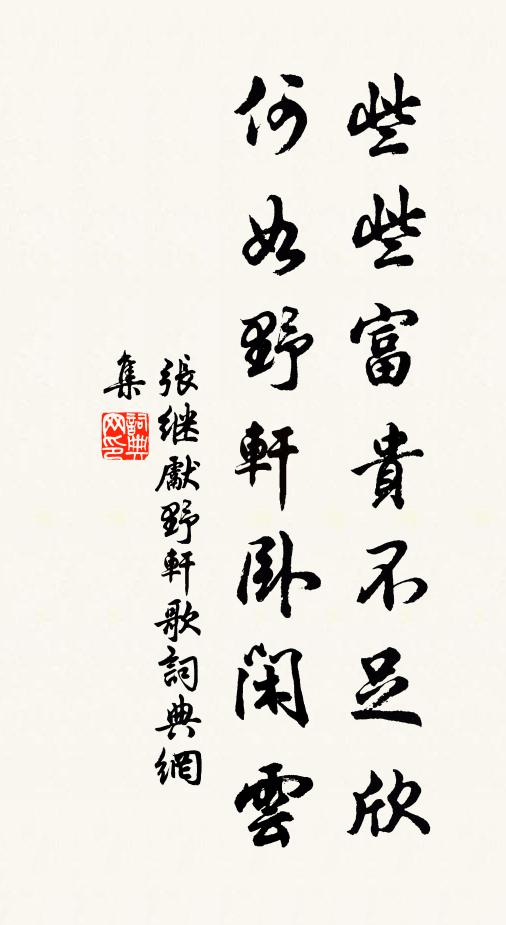 些些富貴不足欣
何如野軒臥閑雲
張継獻野軒歌詞典網
集
詞典
网印